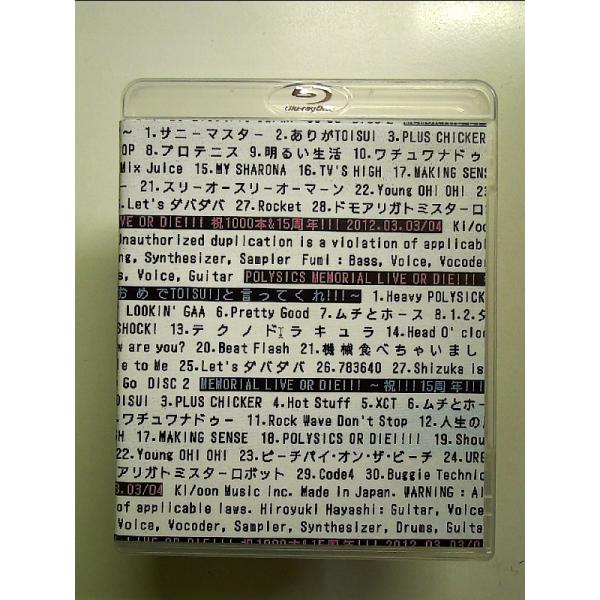 Blu-ray Disc
DISC 2 MEMORIAL LIVE
～ 1.サニーマスター 2.ありがTOISU! 3.PLUS CHICKER
OP 8.プロテニス 9.明るい生活 10.ワチュワナドゥ
Mix Juice 15.MY SHARONA 16.TV'S HIGH 17.MAKING SENS
ー 21.スリーオースリーオーマーン 22.Young OH! OH! 23
.Let's ダバダバ 27.Rocket 28.ドモアリガトミスターロ
IVE OR DIE!!! 祝1000本&15周年!!! 2012.03.03/04 Ki/oon
Unauthorized duplication is a violation of applicabl
ng, Synthesizer, Sampler Fumi : Bass, Voice, Vocoder
s, Voice, Guitar POLYSICS MEMORIAL LIVE OR DIE!!!
おめでTOISU!」と言ってくれ!!!～ 1.Heavy POLYSICK
LOOKIN' GAA 6.Pretty Good 7.ムチとホース 8.1.2.ダ
SHOCK! 13.テクノドラキュラ 14.Head O' cloc
ow are you? 20.Beat Flash 21.機械食べちゃいまし
le to Me 25.Let's ダバダバ 26.783640 27.Shizuka is
Go DISC 2 MEMORIAL LIVE OR DIE!!! ～祝!!!15周年!!!
OISU! 3.PLUS CHICKER 4.Hot Stuff 5.XCT 6.ムチとホ
.ワチュワナドゥー 11.Rock Wave Don't Stop 12.人生の
GH 17.MAKING SENSE 18.POLYSICS OR DIE!!!! 19.Shou
22.Young OH! OH! 23.ピーチパイ・オン・ザ・ビーチ 24.URE
アリガトミスターロボット 29.Code4 30.Buggie Technic
3.03/04 Ki/oon Music Inc. Made in Japan. WARNING : Al
of applicable laws. Hiroyuki Hayashi: Guitar, Voice
Voice, Vocoder, Sampler, Synthesizer, Drums, Guita
IVE OR DIE!!! 祝1000本&15周年!!! 2012.03.03/0